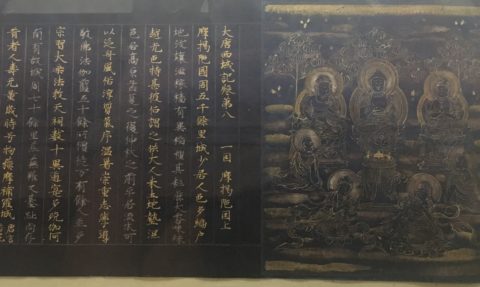 大唐西域記卷第八　一國　摩揭陁國上
摩揭陁國周五千餘里城少居人邑多編戶
地沃壤滋稼穡有異稻種其粒麁大香味殊
越光色特甚彼俗謂之供大人米土地墊濕
邑居高原孟夏之後仲秋之前平居流水可
以泛舟風俗淳質氣序溫暑崇重志學尊
敬佛法伽藍五十餘所僧徒万有餘人並多
宗習大乘法教天祠數十異道寔多殑伽河
南有故城周七十餘里荒蕪雖久基址尚在
昔者人壽无量歲時号拘蘇摩補羅城唐言